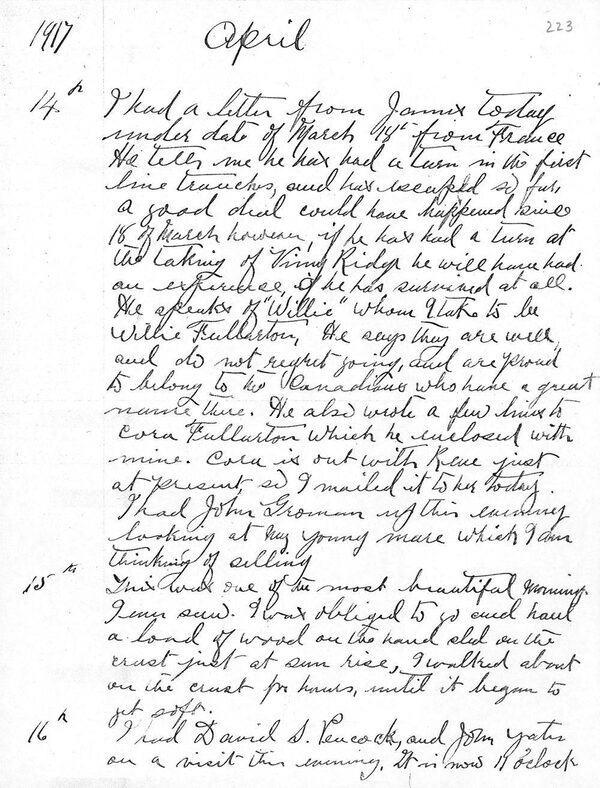 223
1917 April
14th I had a letter from James today
under date of March 18th from France
He tells me he has had a turn in the first
line trenches, and has escaped so far,
a good deal could have happened since
18 of March however, if he has had a turn at
the taking of Vimy Ridge he will have had
an experience, if he has survived at all.
He speaks of "Willie" whom I take to be
Willie Fullarton, He says they are well,
and do not regret going, and are proud
to belong to the Canadians who have a great
name there. He also wrote a few lines to
Cora Fullarton which he enclosed with
mine. Cora is out with Rene just
at present, so I mailed it to her today.
I had John Groman up this evening
looking at my young mare which I am
thinking of selling
15th This was one of the most beautiful mornings
I ever saw. I was obliged to go and haul
a load of wood on the hand sled on the
crust just at sun rise, I walked about
on the crust for hours, until it began to
get soft.
16th I had David S. Peacock, and John Yates
on a visit this evening. It is now 11 oclock